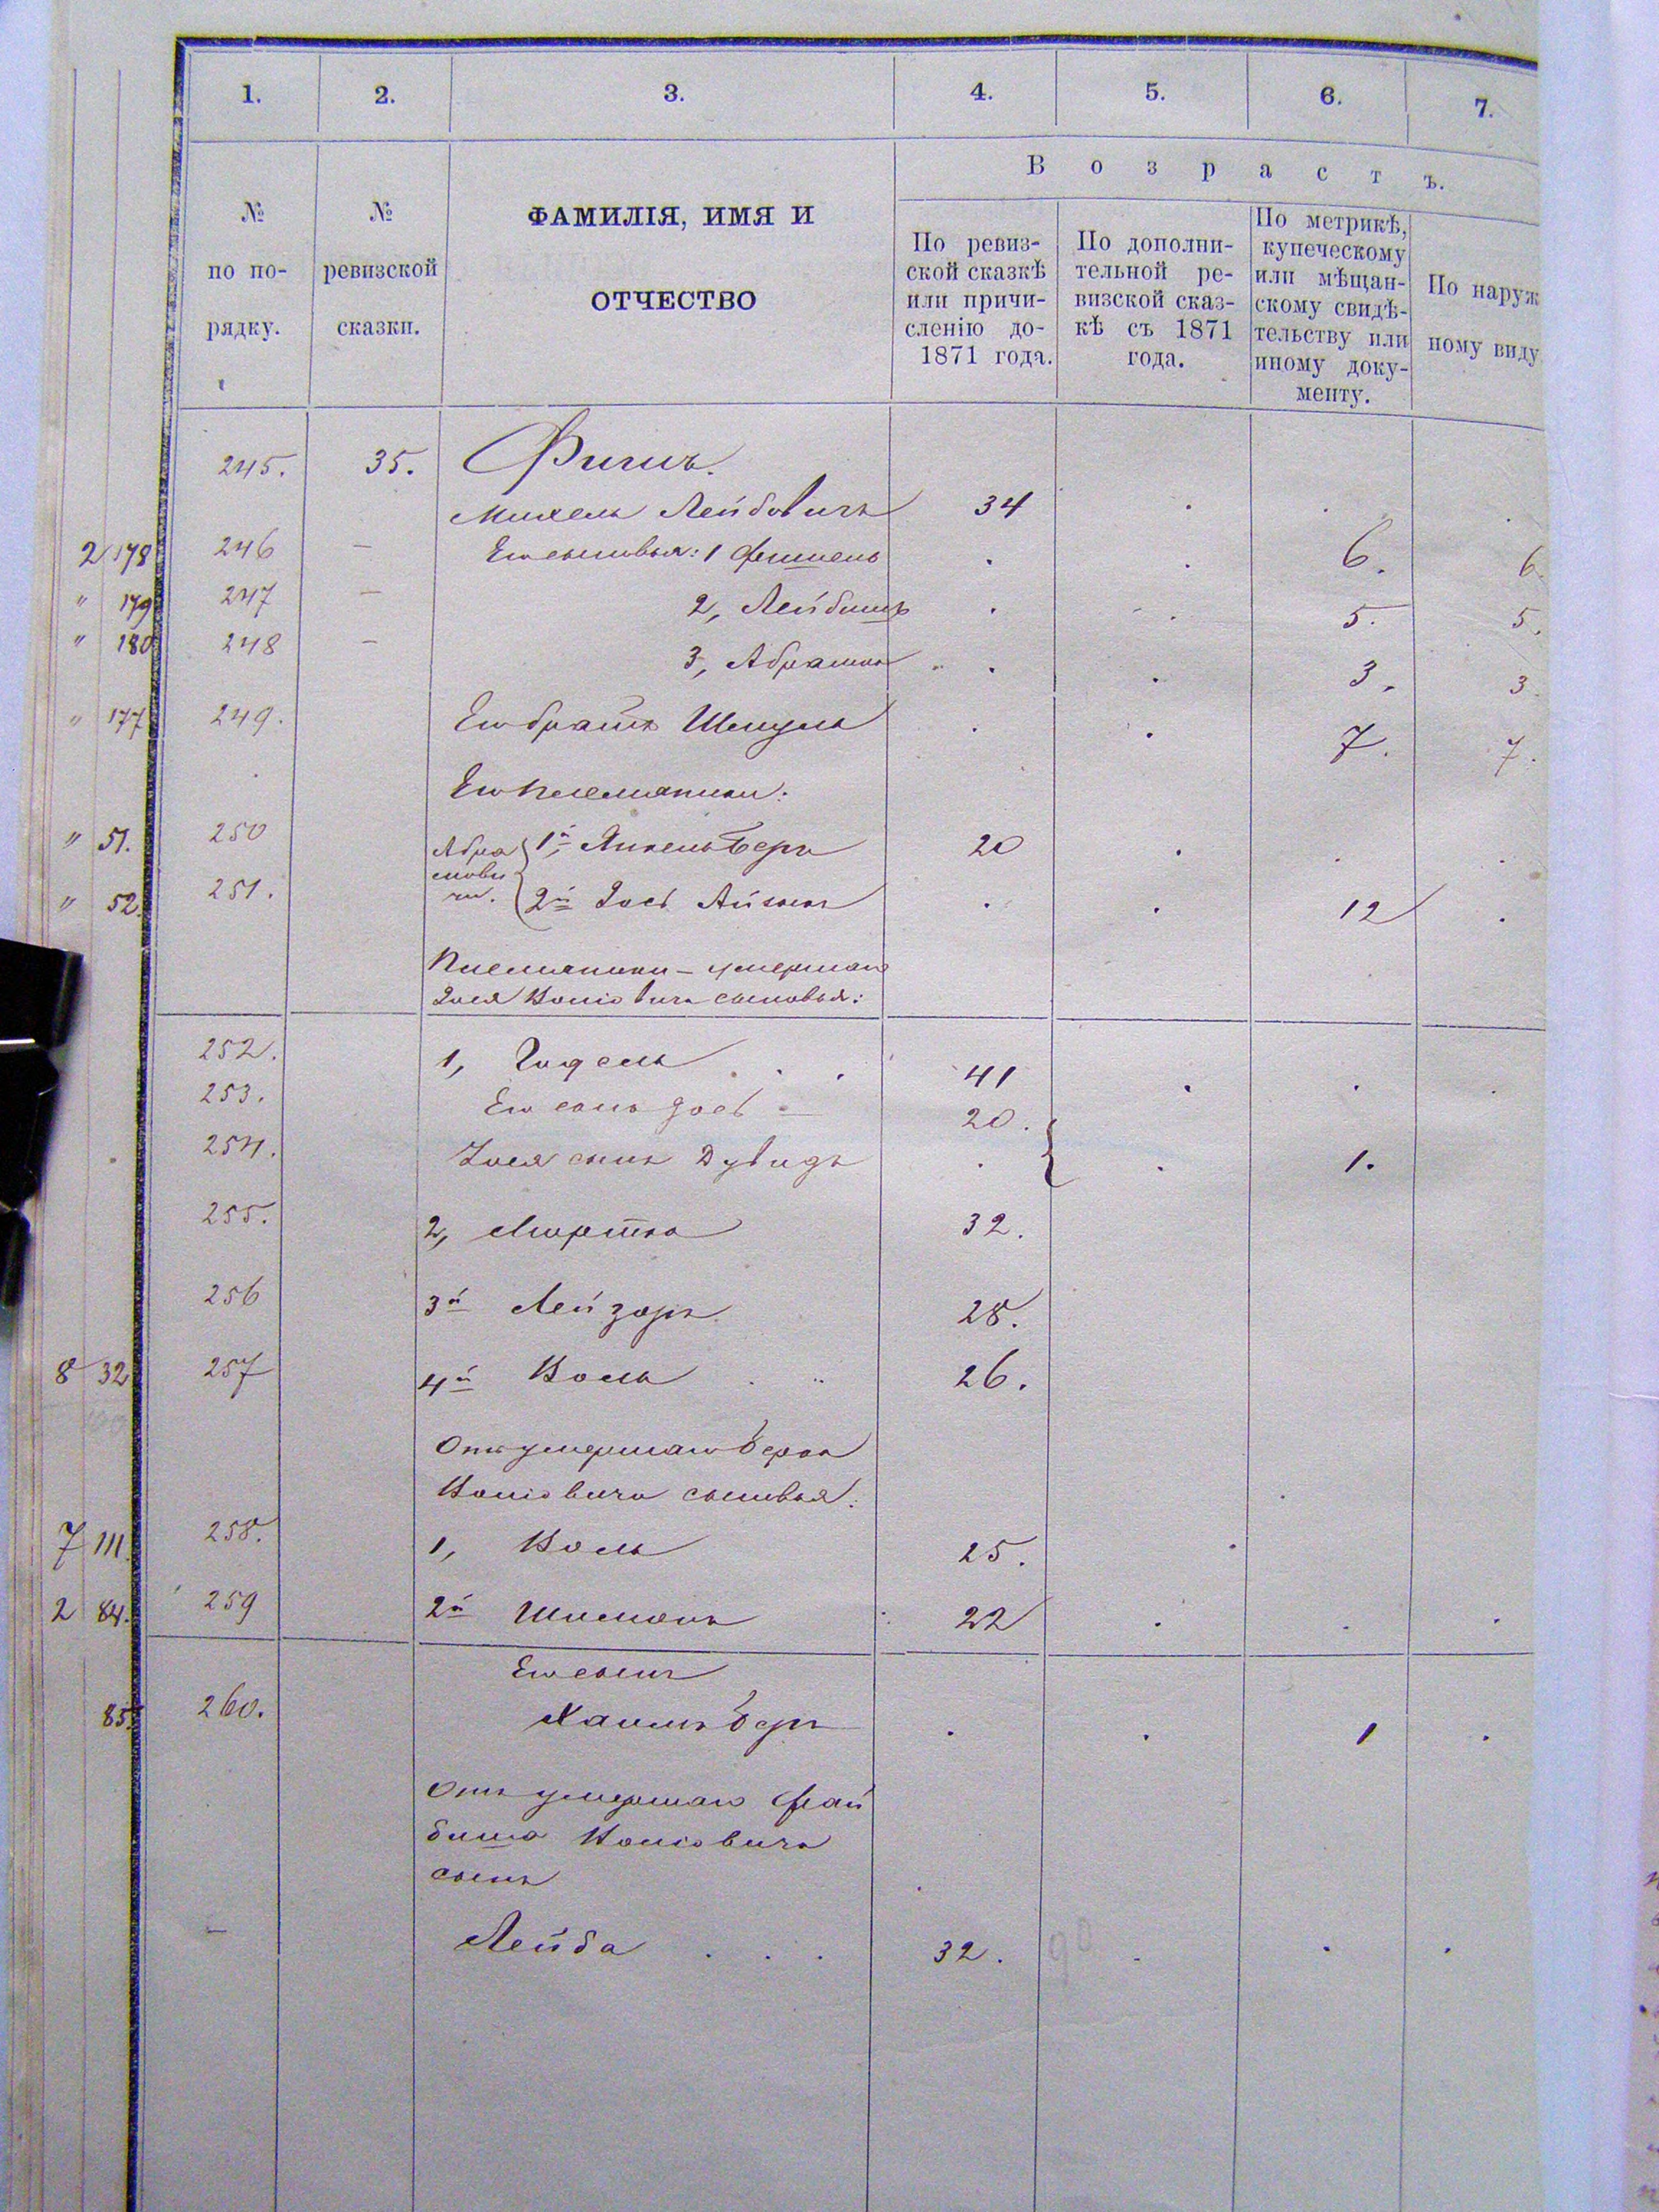 1. 2. 3. 4. 5. 6. 7.
Возрастъ.
№ по по- рядку.
№ ревизской сказки.
ФАМИЛІЯ, ИМЯ И
ОТЧЕСТВО
По ревиз-
ской сказкѣ
или причи-
сленію до-
1871 года.
По дополни-
тельной ре-
визской сказ-
кѣ съ 1871
года.
По метрикѣ,
купеческому
или мѣщан-
скому свидѣ-
тельству или
иному доку-
менту.
По наруж
ному виду
245. 35.
Михель Лейбовичъ 34
2 178 246 — Его сыновья: 1 Фишель . . 6. 6.
" 179 247 — 2, Лейбишъ . . 5. 5.
" 180 248 — 3, Абрамъ . . 3. 3.
" 177 249. Его братъ Шмуль . . 7. 7.
Его племянники:
" 51. 250 Абра 1й Янкель Беръ 20
мови
" 52. 251. чи. 2й Іось . . 12
Племянники – умершаго
Іося сыновья:
252. 1, Гидель 41
253. Его сынъ Іось — 20.
254. Іося сынъ Дувидъ . . 1.
255. 2, 32.
256 3й Лейзоръ 28.
8 32 257 4й 26.
Отъ умершаго Берка
сыновья:
7 111. 258. 1, 25.
2 84. 259 2й Шимонъ 22
Его сынъ
85. 260. Хаимъ Беръ . . 1
Отъ умершаго Фай
биша
сынъ
— Лейба 32. 90